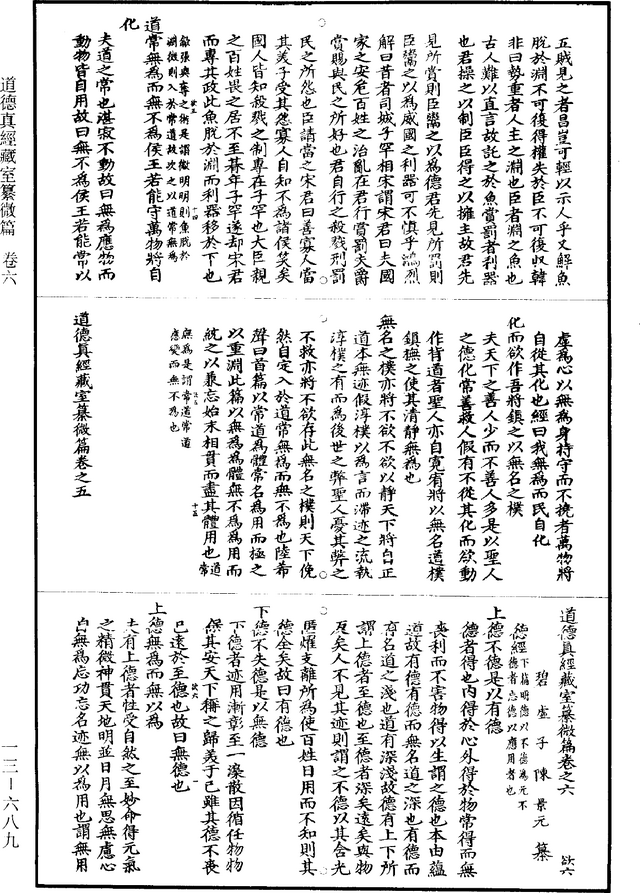 五賊見之者昌豈可輕以示人乎又解魚
脫於淵不可復得權失於臣不可復収韓
非曰勢重者人主之淵也臣者淵之魚也
古人難以直言故託之於魚賞罰者利器
也君操之以制臣臣得之以擁主故君先
見所賞則臣鬻之以為德君先見所罰則
臣鬻之以為威國之利器可不慎乎鴻烈
解曰昔者司城子罕相宋謂宋君曰夫國
家之安危百姓之治亂在君行賞罰夫爵
賞賜與民之所好也君自行之殺戮刑罰
民之所怨也臣請當之宋君曰善寡人當
其美子受其怨寡人自知不為諸侯笑矣
國人皆知殺戮之制專在子罕也大臣親
之百姓畏之居不至朞年子罕遂却宋君
而專其政此魚脫於淵而利器移於下也
歙張與奪之術是謂微明明則魚脫於
淵微則入於常道故次之以道常無為
道常無為而無不為侯王若能守萬物將自
化
夫道之常也湛寂不動故曰無為應物而
動物皆自用故曰無不為侯王若能常以
虛為心以無為身持守而不撓者萬物將
自從其化也經曰我無為而民自化
化而欲作吾將鎮之以無名之樸
夫天下之善人少而不善人多是以聖人
之德化常善救人假有不從其化而欲動
作背道者聖人亦自寬宥將以無名道樸
鎮撫之使其清靜無為也
無名之樸亦將不欲不欲以靜天下將自正
道本無迹假淳樸以為言而滯迹之流執
淳樸之有而為後世之弊聖人憂其弊之
不救亦將不欲存此無名之樸則天下俛
然自定入於道常無為而無不為也陸希
聲曰首篇以常道為體常名為用而極之
以重淵此篇以無為為體無不為為用而
統之以兼忘始末相貫而盡其體用也常
無為是謂常道常道
應變而無不為也
道德真經藏室纂微篇卷之五
道德真經藏室纂微篇卷之六
欲六
碧虛子陳景元纂
德經
下篇明德以不德為元不
德者忘德以應用者也
上德不德是以有德
德者得也內得於心外得於物常得而無
喪利而不害物得以生謂之德也本由蘊
道故有德有德而無名道之深也有德而
有名道之淺也道有深淺故德有上下所
謂上德者至德也至德者深矣遠矣與物
反矣人不見其迹則謂之不德以其含光
匿耀支離所為使百姓日用而不知則其
德全矣故曰有德也
下德不失德是以無德
下德者迹用漸彰至一澡散因循任物物
保其安天下稱之歸美于己雖其德不喪
已遠於至德也故曰無德也
上德無為而無以為
夫有上德者性受自然之至妙命得元氣
之精微神貫天地明並日月無思無慮心
自無為忘功忘名迹無以為用也謂無用
道德真經藏室纂微篇 卷六
一三—六八九